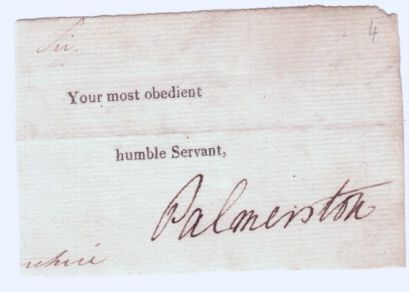 Sir.
4
Your most obedient
humble Servant,
Palmerston